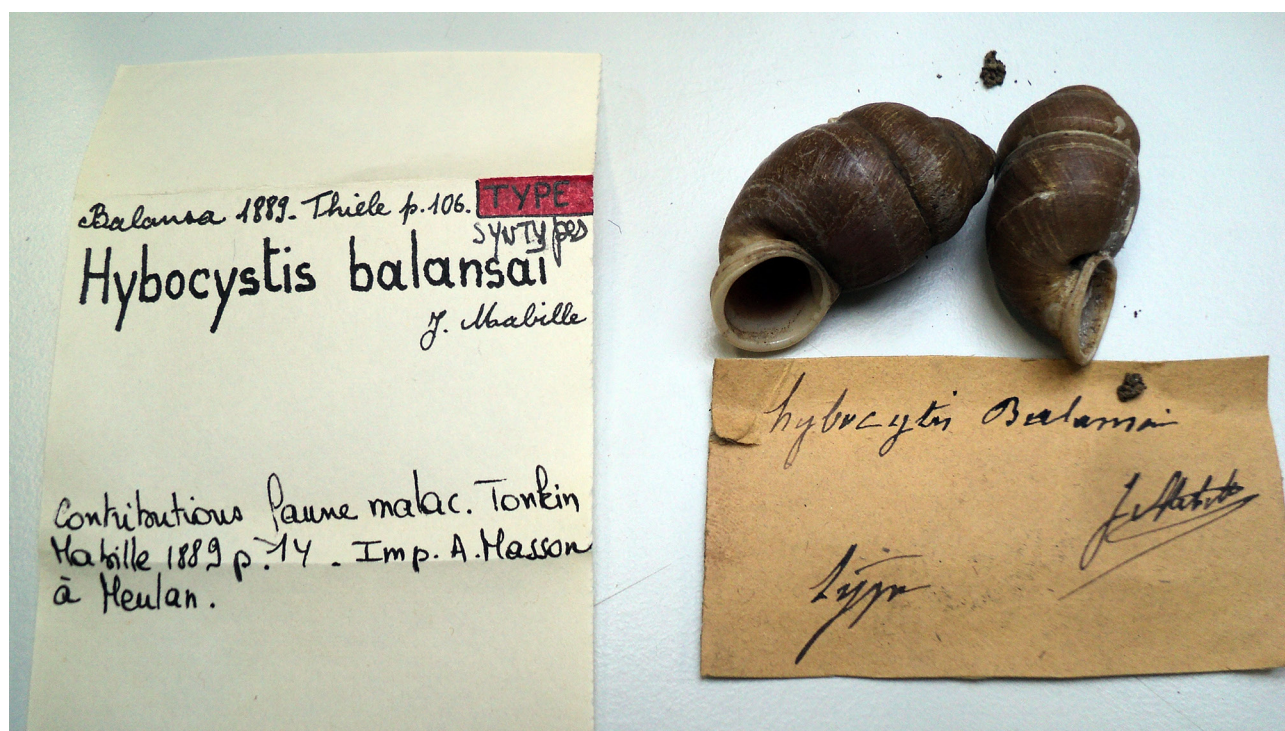 Balansa 1889. Thiele p.106. TYPE
syntypes
Hybocystis balansai
J. Mabille
Contributions faune malac. Tonkin
Mabille 1889 p. 14. Imp. A. Masson
à Meulan.
hybocytis Balansai
J Mabille
Type